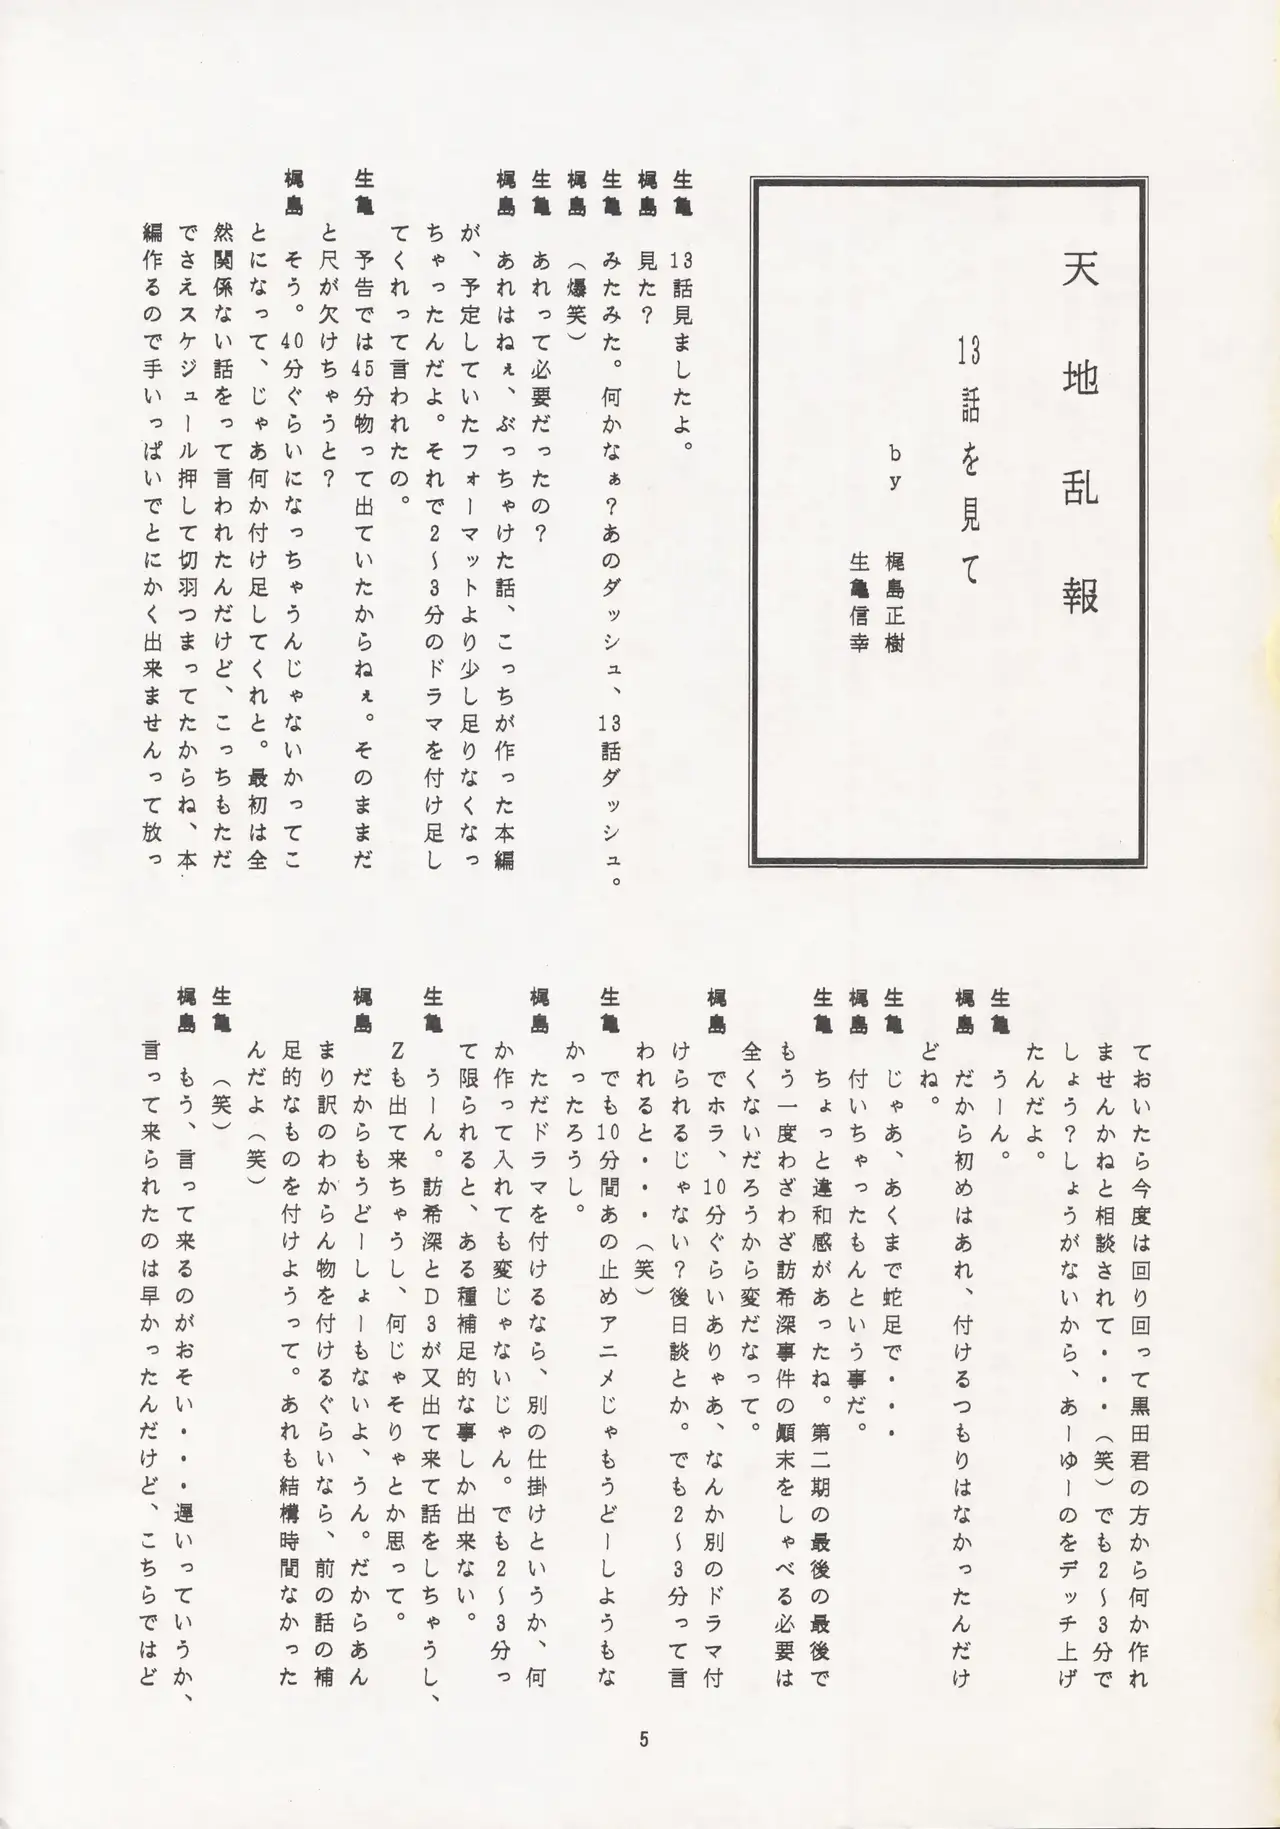 天地乱報
13話を見て
by
梶島正樹
生亀信幸
生亀　13話見ましたよ。
梶島　見た？
生亀　みたみた。何かなぁ？あのダッシュ、13話ダッシュ。
梶島　（爆笑）
生亀　あれって必要だったの？
梶島　あれはねぇ、ぶっちゃけた話、こっちが作った本編
が、予定していたフォーマットより少し足りなくなっ
ちゃったんだよ。それで２～３分のドラマを付け足し
てくれって言われたの。
生亀　予告では45分物って出ていたからねぇ。そのままだ
と尺が欠けちゃうと？
梶島　そう。40分ぐらいになっちゃうんじゃないかってこ
とになって、じゃあ何か付け足してくれと。最初は全
然関係ない話をって言われたんだけど、こっちもただ
でさえスケジュール押して切羽つまってたからね、本
編作るので手いっぱいでとにかく出来ませんって放っ
ておいたら今度は回り回って黒田君の方から何か作れ
ませんかねと相談されて・・・（笑）でも２～３分で
しょう？しょうがないから、あーゆーのをデッチ上げ
たんだよ。
生亀　うーん。
梶島　だから初めはあれ、付けるつもりはなかったんだけ
どね。
生亀　じゃあ、あくまで蛇足で・・・
梶島　付いちゃったもんという事だ。
生亀　ちょっと違和感があったね。第二期の最後の最後で
もう一度わざわざ訪希深事件の顛末をしゃべる必要は
全くないだろうから変だなって。
梶島　でホラ、10分ぐらいありゃあ、なんか別のドラマ付
けられるじゃない？後日談とか。でも２～３分って言
われると・・・（笑）
生亀　でも10分間あの止めアニメじゃもうどーしようもな
かったろうし。
梶島　ただドラマを付けるなら、別の仕掛けというか、何
か作って入れても変じゃないじゃん。でも２～３分っ
て限られると、ある種補足的な事しか出来ない。
生亀　うーん。訪希深とＤ３が又出て来て話をしちゃうし、
Ｚも出て来ちゃうし、何じゃそりゃとか思って。
梶島　だからもうどーしょーもないよ、うん。だからあん
まり訳のわからん物を付けるぐらいなら、前の話の補
足的なものを付けようって。あれも結構時間なかった
んだよ（笑）
生亀　（笑）
梶島　もう、言って来るのがおそい・・・遅いっていうか、
言って来られたのは早かったんだけど、こちらではど
5